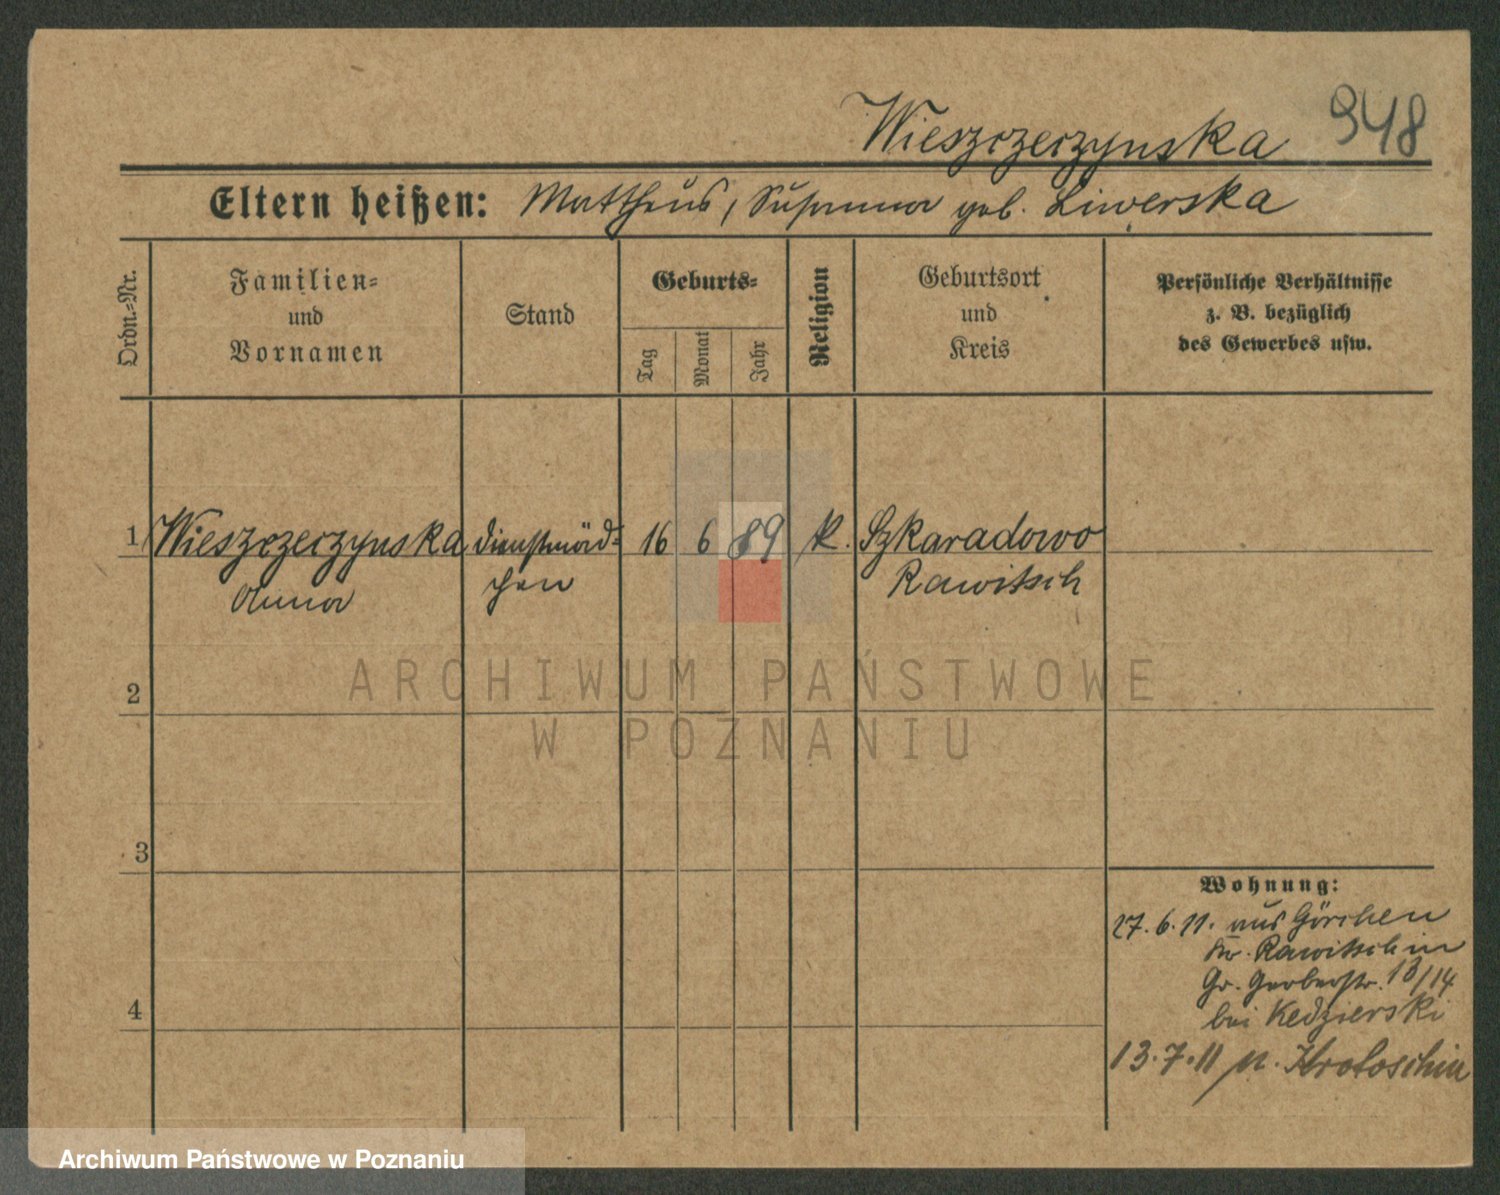 Wieszczeczynska 948
Eltern heißen: Mattheus, Susanna geb. Liwerska
Ordn.-Nr.
Familien-
und
Vornamen
Stand
Geburts-
Tag
Monat
Jahr
Religion
Geburtsort
und
Kreis
Persönliche Verhältnisse
z. B. bezüglich
des Gewerbes usw.
1 Wieszczeczynska Dienstmäd- 16 6 89 k. Szkaradowo
Anna chen Rawitsch
ARCHIWUM PAŃSTWOWE
2
W POZNANIU
3
Wohnung:
27.6.11. aus Görchen
Kr. Rawitsch in
Gr. Gerberstr. 13/14
4
bei Kedzierski
13.7.11 n. Krotoschin
Archiwum Państwowe w Poznaniu